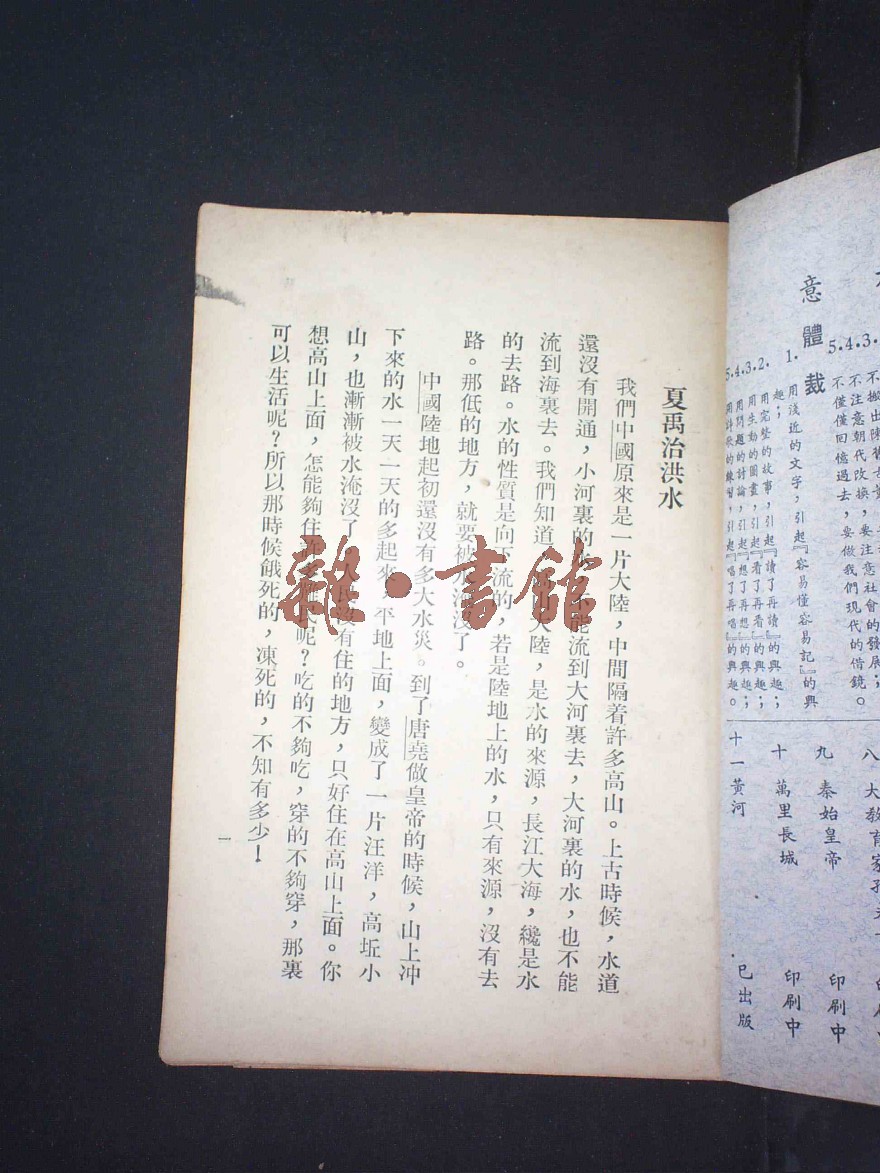 不注意朝代改換，要注意社會的發展；
不僅僅回憶過去，要做我們現代的借鏡。
體裁
1. 用淺近的文字，引起『容易懂容易記』的興
趣；
2. 用完整的故事，引起『讀了再讀』的興趣；
3. 用生動的圖畫，引起『看了再看』的興趣；
4. 用問題的討論，引起『想了再想』的興趣；
5. 用詩歌的練習，引起『唱了再唱』的興趣。
八 大教育家孔
九 秦始皇帝 印刷中
十 萬里長城 印刷中
十一 黃河 已出版
夏禹治洪水
我們中國原來是一片大陸，中間隔着許多高山。上古時候，水道
還沒有開通，小河裏的不能流到大河裏去，大河裏的水，也不能
流到海裏去。我們知道大陸，是水的來源，長江大海，纔是水
的去路。水的性質是向下流的，若是陸地上的水，只有來源，沒有去
路。那低的地方，就要被水淹沒了。
中國陸地起初還沒有多大水災。到了唐堯做皇帝的時候，山上冲
下來的水一天一天的多起來，平地上面，變成了一片汪洋，高坵小
山，也漸漸被水淹沒了人民沒有住的地方，只好住在高山上面。你
想高山上面，怎能夠住許多難民呢？吃的不夠吃，穿的不夠穿，那裏
可以生活呢？所以那時候餓死的，凍死的，不知有多少！
一
雜·書館